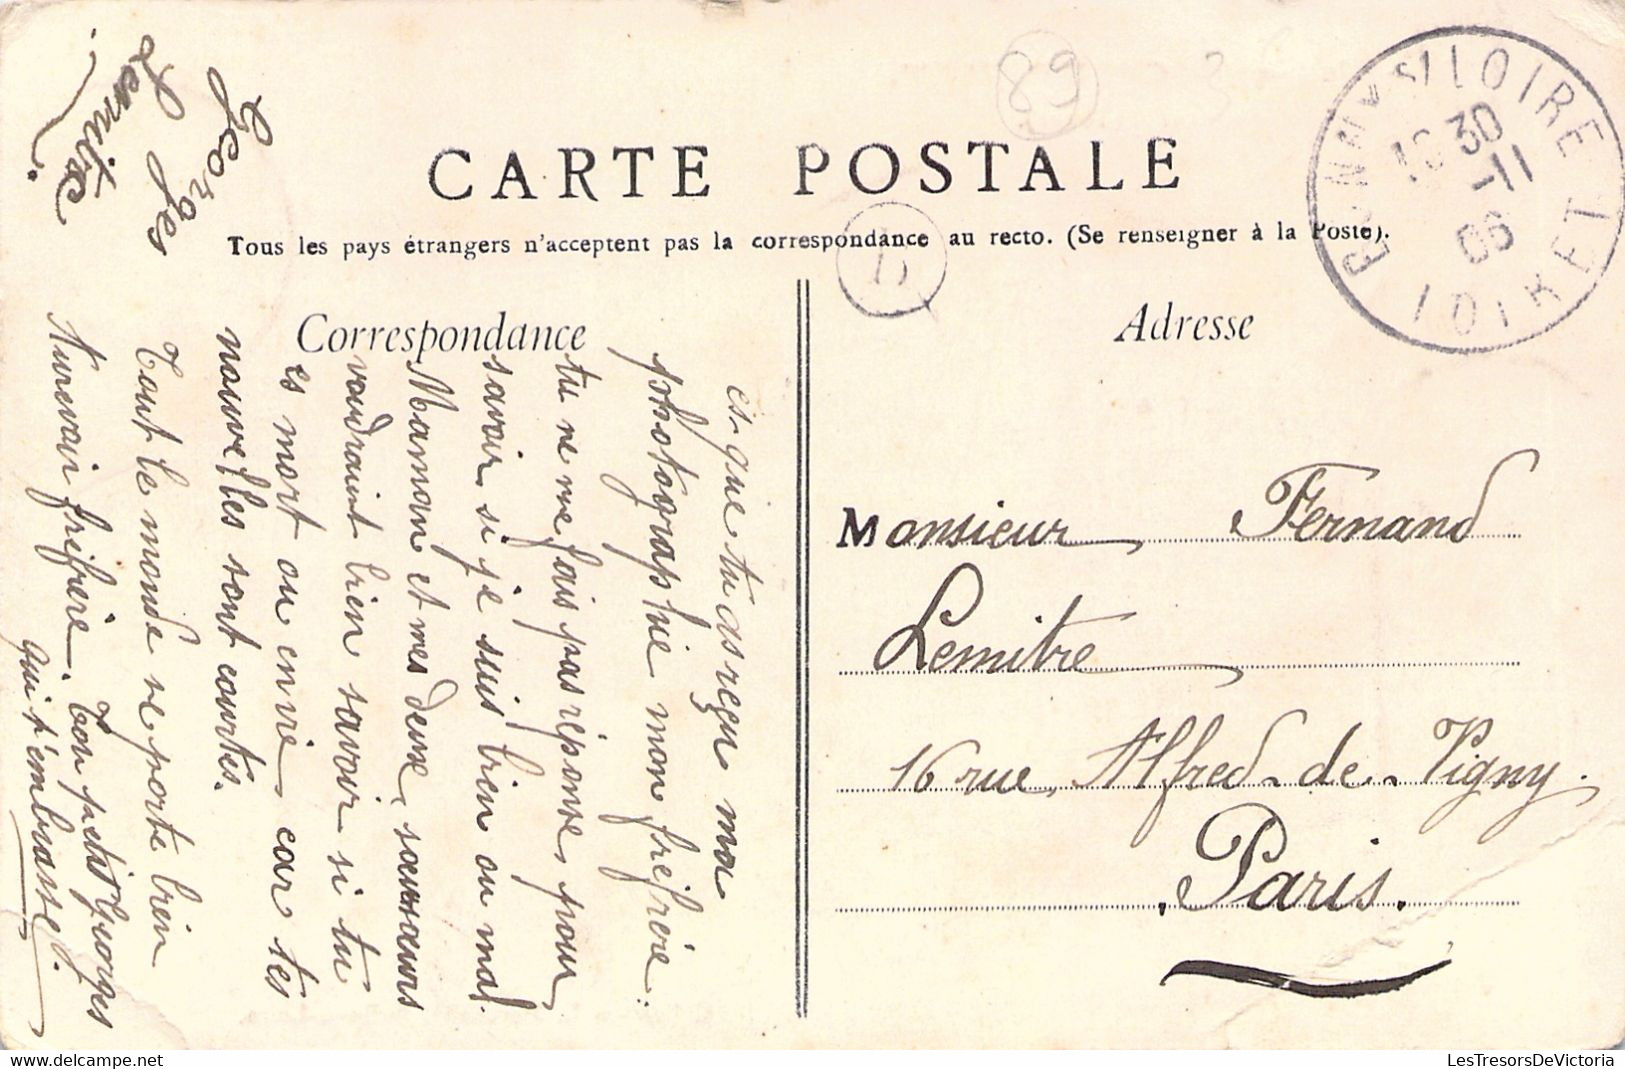 CARTE POSTALE
Tous les pays étrangers n'acceptent pas la correspondance au recto. (Se renseigner à la Poste).
Correspondance
est-que tu as reçu ma
photographie mon frifrère :
tu ne me fais pas réponse, pour
savoir, si je suis bien ou mal.
Maman et mes deux sœurs
voudraient bien savoir si tu
es mort ou en vie, car tes
nouvelles sont courtes.
Tout le monde se porte bien
Aurevoir frifrère. Ton petit Georges
qui t'embrasse.
Georges
Lemitre
Adresse
Monsieur Fernand
Lemitre
16 rue, Alfred-de-Vigny.
Paris.
BONNY S/ LOIRE
30
-11
06
LOIRET
89
3
LesTresorsDeVictoria